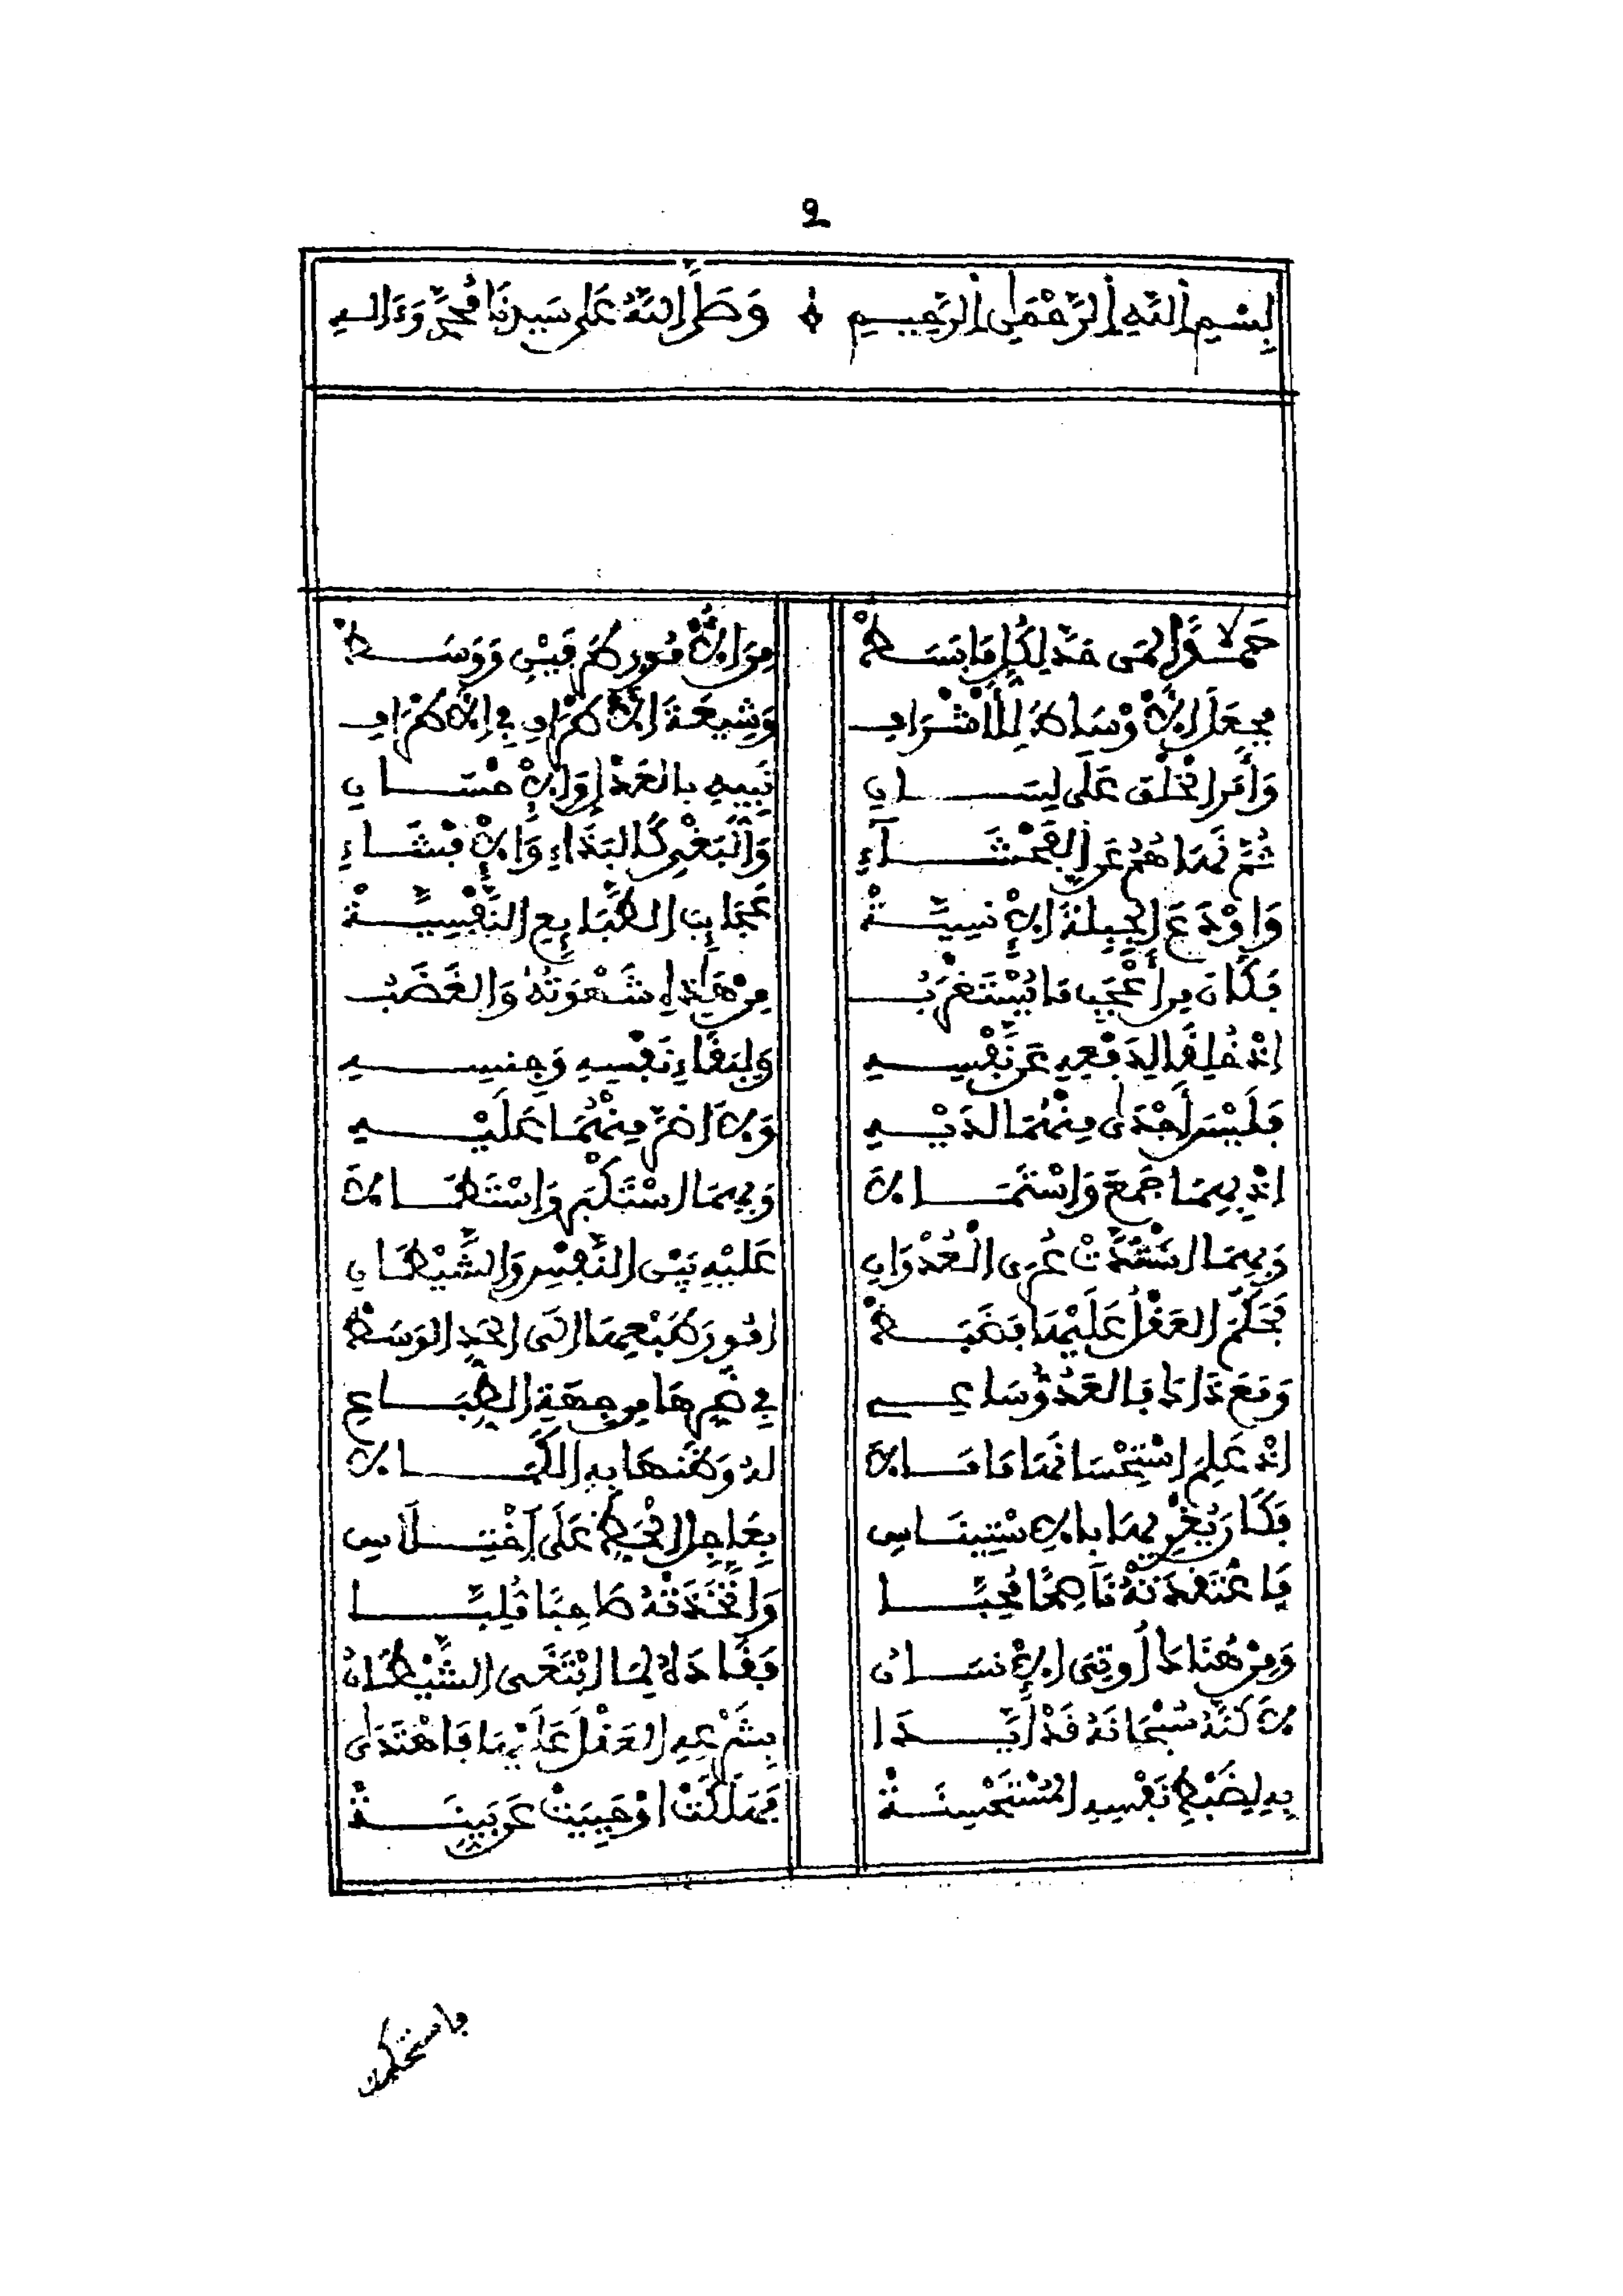 2
بِسْمِ اللَّهِ الرَّحْمَٰنِ الرَّحِيمِ وَصَلَّى اللَّهُ عَلَى سَيِّدِنَا مُحَمَّدٍ وَءَالِهِ
حَمْدًا لِمَن حَدَّ لِكُلٍّ مَا بَسَطْ مِنَ الْأُمُورِ طَرَفَيْنِ وَوَسَطْ
فَجَعَلَ الْأَوْسَاطَ لِلْأَشْرَافِ وَشِيعَةَ الْأَطْرَافِ فِي الْأَطْرَافِ
وَأَمَرَ الْخَلْقَ عَلَى لِسَانِ نَبِيِّهِ بِالْعَدْلِ وَالْإِحْسَانِ
ثُمَّ نَهَاهُمْ عَنِ الْفَحْشَآءِ وَالْبَغْيِ كَالْبَذَاءِ وَالْإِفْشَاءِ
وَأَوْدَعَ الْجِبِلَّةَ الْإِنْسِيَّةْ عَجَائِبَ الطَّبَائِعِ النَّفْسِيَّةْ
فَكَانَ مِنْ أَعْجَبِ مَا يُسْتَغْرَبُ مِنْ هَذِهِ شَهْوَتُهُ وَالْغَضَبُ
إِذْ خُلِقَا لِدَفْعِهِ عَنْ نَفْسِهِ وَلِبَقَاءِ نَفْسِهِ وَجِنْسِهِ
فَلَيْسَ أَجْدَى مِنْهُمَا لَدَيْهِ وَلَا أَضَرَّ مِنْهُمَا عَلَيْهِ
إِذْ بِهِمَا جَمَعَ وَاسْتَمَالَا وَبِهِمَا اسْتَكْبَرَ وَاسْتَطَالَا
وَبِهِمَا اشْتَدَّتْ عُرَى الْعُدْوَانِ عَلَيْهِ بَيْنَ النَّفْسِ وَالشَّيْطَانِ
فَحَكَّمَ الْعَقْلَ عَلَيْهِمَا فَضَبَطْ أُمُورَ طَبْعِهِمَا إِلَى الْحَدِّ الْوَسَطْ
وَمَعَ ذَا ذَا فَالْعَدُوُّ سَاعِ فِي ضَيْرِهَا مِنْ جِهَةِ الطِّبَاعِ
إِذْ عَلِمَ اسْتِحْسَانَهَا مَا مَالَا لَهُ وَظَنَّهَا بِهِ الْكَمَالَا
فَكَانَ يُغْرِيهَا بِالِاسْتِينَاسِ بِعَاجِلِ الْحَظِّ عَلَى اخْتِلَاسِ
فَاعْتَقَدَتْهُ نَاصِحًا مُحِبَّا وَاتَّخَذَتْهُ صَاحِبًا مُلِبَّا
وَمِنْ هُنَا ذَا أُوتِيَ الْإِنْسَانُ فَقَادَهُ لِمَا ابْتَغَى الشَّيْطَانُ
لَكِنَّهُ سُبْحَانَهُ قَدْ أَيَّدَا بِشَرْعِهِ الْعَقْلَ عَلَيْهَا فَاهْتَدَى
بِهِ لِضَبْطِ نَفْسِهِ الْمُسْتَحْسِنَةْ فَهَلَكَتْ أَوْ حَيِيَتْ عَنْ بَيِّنَةْ